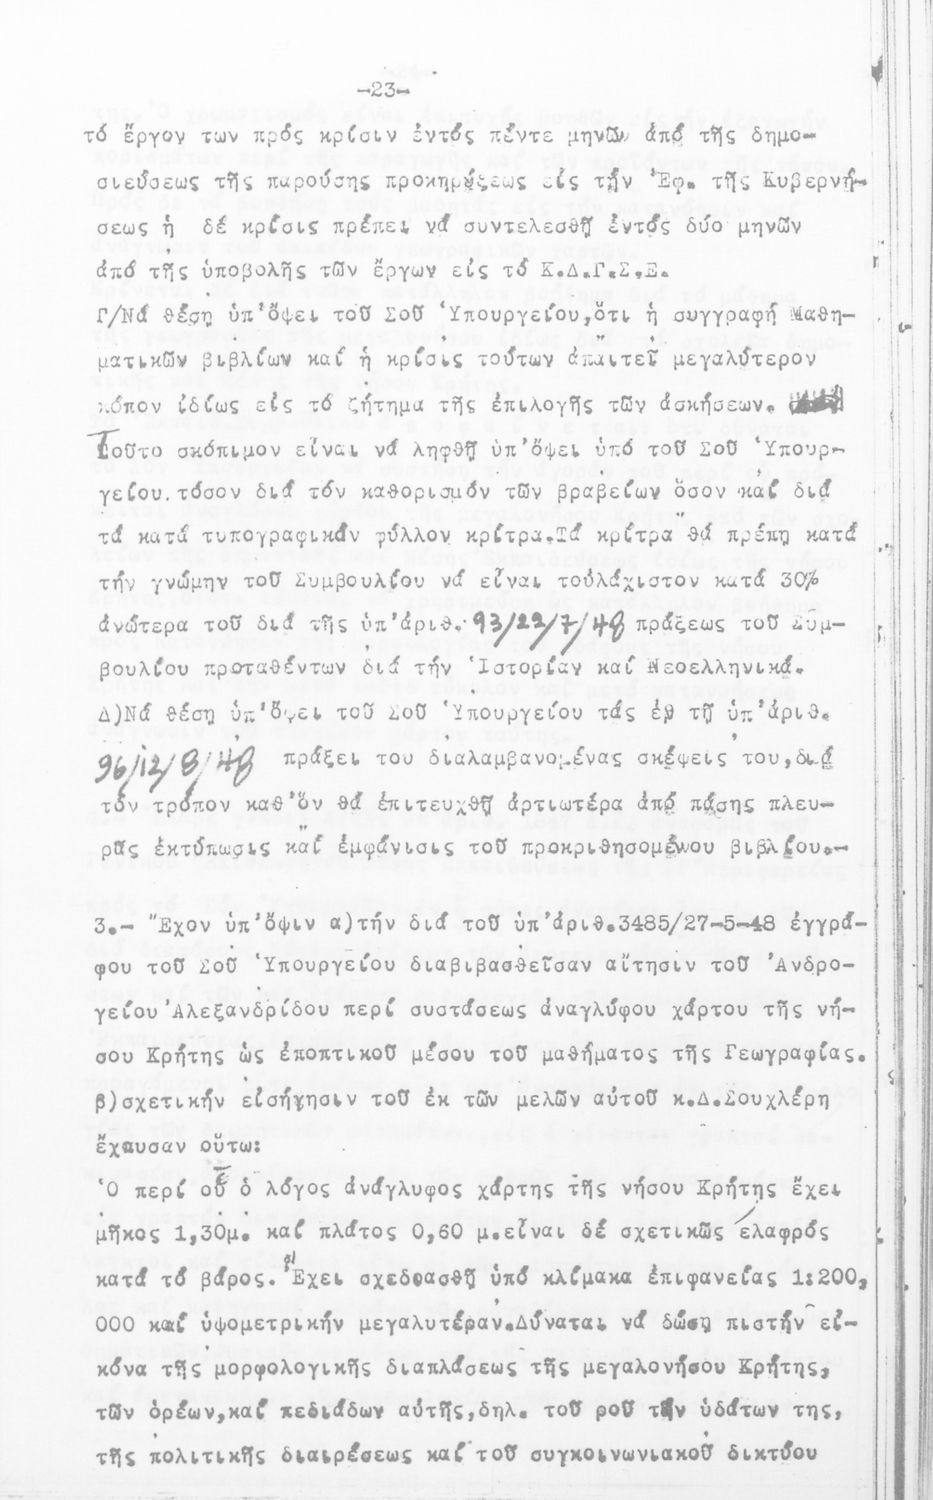 -23-
τό ἔργον των πρός κρίσιν ἐντός πέντε μηνῶν ἀπό τῆς δημο-
σιεύσεως τῆς παρούσης προκηρύξεως εἰς τήν Ἐφ. τῆς Κυβερνή-
σεως ἡ δέ κρίσις πρέπει νά συντελεσθῇ ἐντός δύο μηνῶν
ἀπό τῆς ὑποβολῆς τῶν ἔργων εἰς τό Κ.Δ.Γ.Σ.Ε.
Γ/Νά θέσῃ ὑπ'ὄψει τοῦ Σοῦ Ὑπουργείου,ὅτι ἡ συγγραφή Μαθη-
ματικῶν βιβλίων καί ἡ κρίσις τούτων ἀπαιτεῖ μεγαλύτερον
κόπον ἰδίως εἰς τό ζήτημα τῆς ἐπιλογῆς τῶν ἀσκήσεων.
Τοῦτο σκόπιμον εἶναι νά ληφθῇ ὑπ'ὄψει ὑπό τοῦ Σοῦ Ὑπουρ-
γείου.τόσον διά τόν καθορισμόν τῶν βραβείων ὅσον καί διά
τά κατά τυπογραφικόν φύλλον κρίτρα.Τά κρίτρα θά πρέπῃ κατά
τήν γνώμην τοῦ Συμβουλίου νά εἶναι τοὐλάχιστον κατά 30%
ἀνώτερα τοῦ διά τῆς ὑπ'ἀριθ. 93/22/7/48 πράξεως τοῦ Συμ-
βουλίου προταθέντων διά τήν Ἱστορίαν καί Νεοελληνικά.
Δ)Νά θέσῃ ὑπ'ὄψει τοῦ Σοῦ Ὑπουργείου τάς ἐν τῇ ὑπ'ἀριθ.
96/12/8/48 πράξει του διαλαμβανομένας σκέψεις του,διά
τόν τρόπον καθ'ὅν θά ἐπιτευχθῇ ἀρτιωτέρα ἀπό πάσης πλευ-
ρᾶς ἐκτύπωσις καί ἐμφάνισις τοῦ προκριθησομένου βιβλίου.-
3.- Ἔχον ὑπ'ὄψιν α)τήν διά τοῦ ὑπ'ἀριθ.3485/27-5-48 ἐγγρά-
φου τοῦ Σοῦ Ὑπουργείου διαβιβασθεῖσαν αἴτησιν τοῦ Ἀνδρο-
γείου Ἀλεξανδρίδου περί συστάσεως ἀναγλύφου χάρτου τῆς νή-
σου Κρήτης ὡς ἐποπτικοῦ μέσου τοῦ μαθήματος τῆς Γεωγραφίας.
β)σχετικήν εἰσήγησιν τοῦ ἐκ τῶν μελῶν αὐτοῦ κ.Δ.Σουχλέρη
ἔχουσαν οὕτω:
Ὁ περί οὗ ὁ λόγος ἀνάγλυφος χάρτης τῆς νήσου Κρήτης ἔχει
μῆκος 1,30μ. καί πλάτος 0,60 μ.εἶναι δέ σχετικῶς ἐλαφρός
κατά τό βάρος. Ἔχει σχεδιασθῇ ὑπό κλίμακα ἐπιφανείας 1:200,
000 καί ὑψομετρικήν μεγαλυτέραν.Δύναται νά δώσῃ πιστήν εἰ-
κόνα τῆς μορφολογικῆς διαπλάσεως τῆς μεγαλονήσου Κρήτης,
τῶν ὀρέων,καί πεδιάδων αὐτῆς,δηλ. τοῦ ροῦ τῶν ὑδάτων της,
τῆς πολιτικῆς διαιρέσεως καί τοῦ συγκοινωνιακοῦ δικτύου